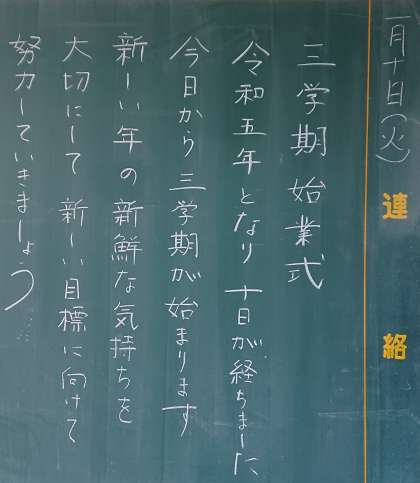 一月十日(火)
連絡
三学期始業式
令和五年となり十日が経ちました
今日から三学期が始まります
新しい年の新鮮な気持ちを
大切にして新しい目標に向けて
努力していきましょう……